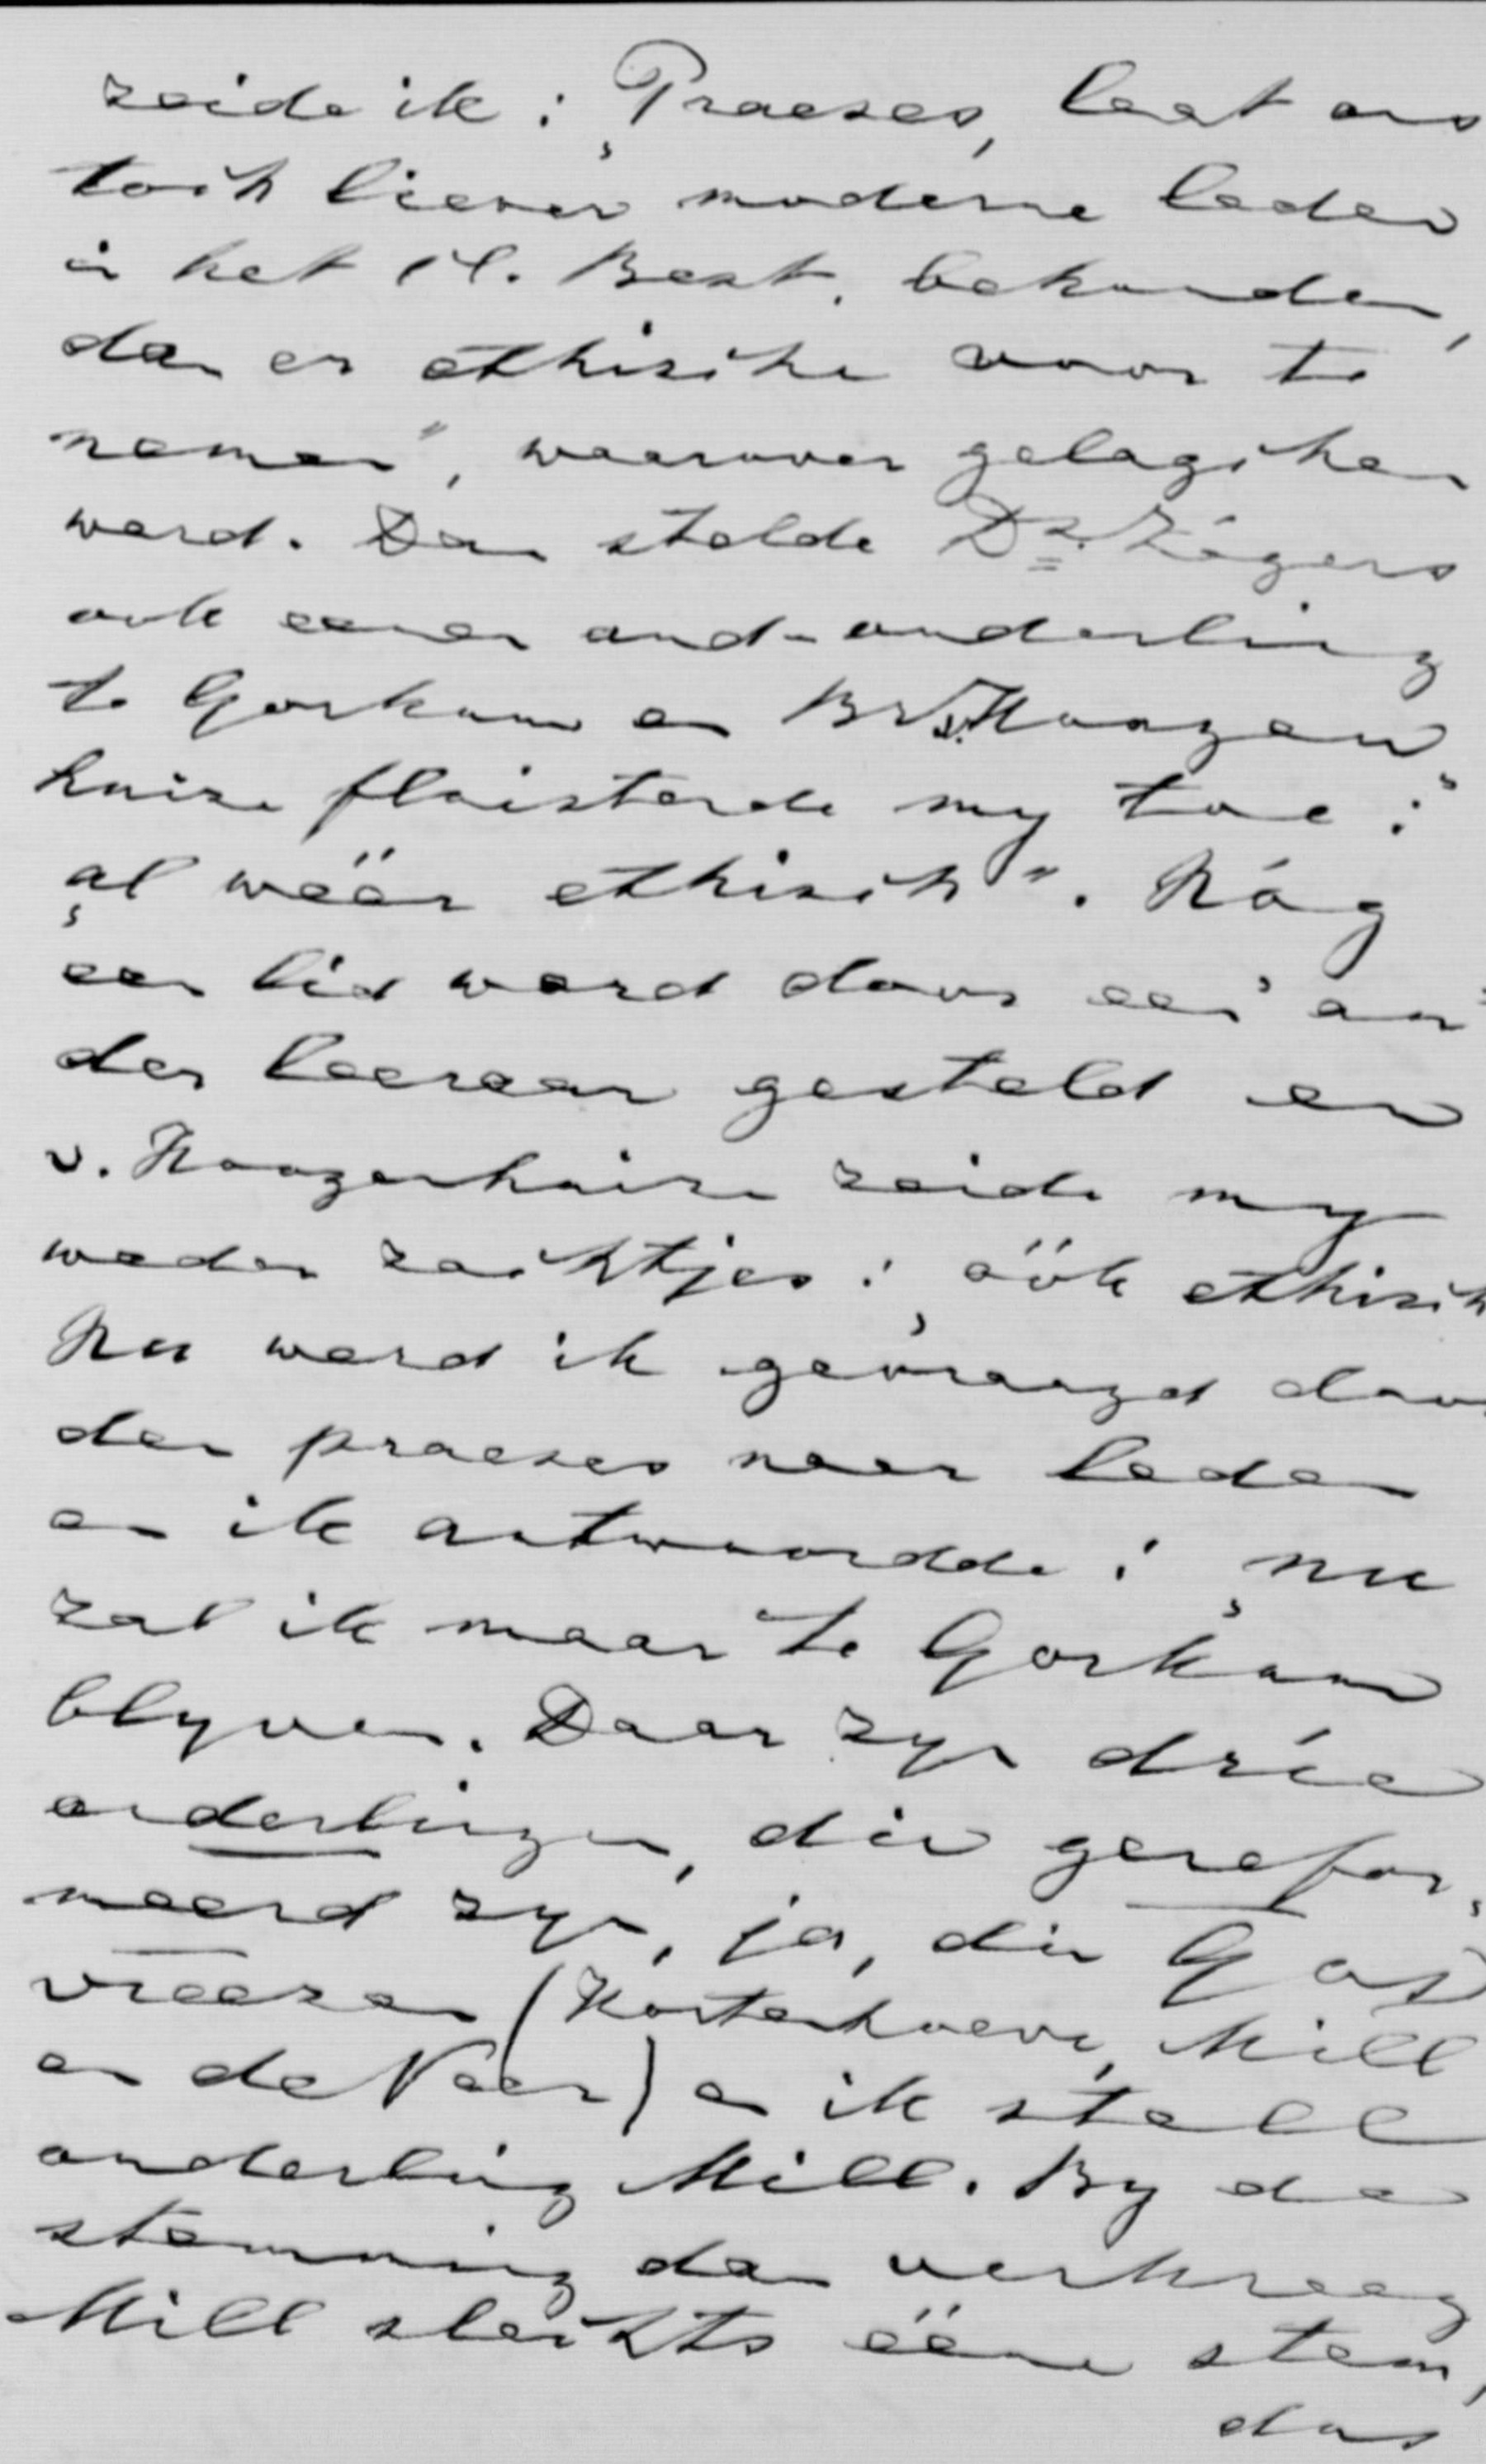 zeide ik: „Praeses, laat ons
toch liever moderne leden
in het Cl. Best. behouden,
dan er ethische voor te
nemen", waarover gelagchen
werd. Dan stelde Ds. Zegers
ook eenen oud-ouderling
te Gorkum en Br. v. Hoogen
huize fluisterde my toe:
„al wëër ethisch". Nóg
een lid werd door een an
der leeraar gesteld en
v. Hoogenhuize zeide my
weder zachtjes: „öök ethisch
Nu werd ik gevraagd door
den praeses naar leden
en ik antwoordde: „nu
zal ik maar te Gorkum
blyven. Daar zyn drie
ouderlingen, die gerefor„
meerd zyn, ja, die God
vreezen (Kosterhoeve, Mill
en de Neer) en ik stell
ouderling Mill. By de
stemming dan verkreeg
Mill slechts ééne stem,
dus